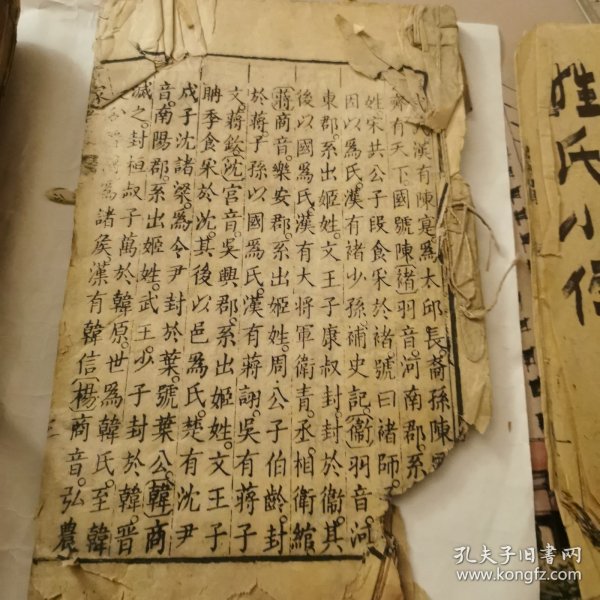 漢有陳寔爲太邱長裔孫陳
齊有天下國號陳褚羽音。河南郡。系
姓宋共公子段食采於褚號曰褚師。
因以爲氏。漢有褚少孫補史記。衞羽音。河
東郡。系出姬姓。文王子康叔封。封於衞。其
後以國爲氏。漢有大將軍衞青。丞相衞綰
蔣商音。樂安郡。系出姬姓。周公子伯齡。封
於蔣。子孫以國爲氏。漢有蔣詡。吳有蔣子
文。蔣欽。沈宮音。吳興郡。系出姬姓。文王子
聃季食采於沈。其後以邑爲氏。楚有沈尹
戍子沈諸梁。爲令尹封於葉。號葉公。韓商
音。南陽郡。系出姬姓。武王少子封於韓。晋
滅之。封桓叔子萬於韓原。世爲韓氏。至韓
爲諸侯漢有韓信。楊商音。弘農
姓氏小
孔夫子旧书网
www.kongfz.com